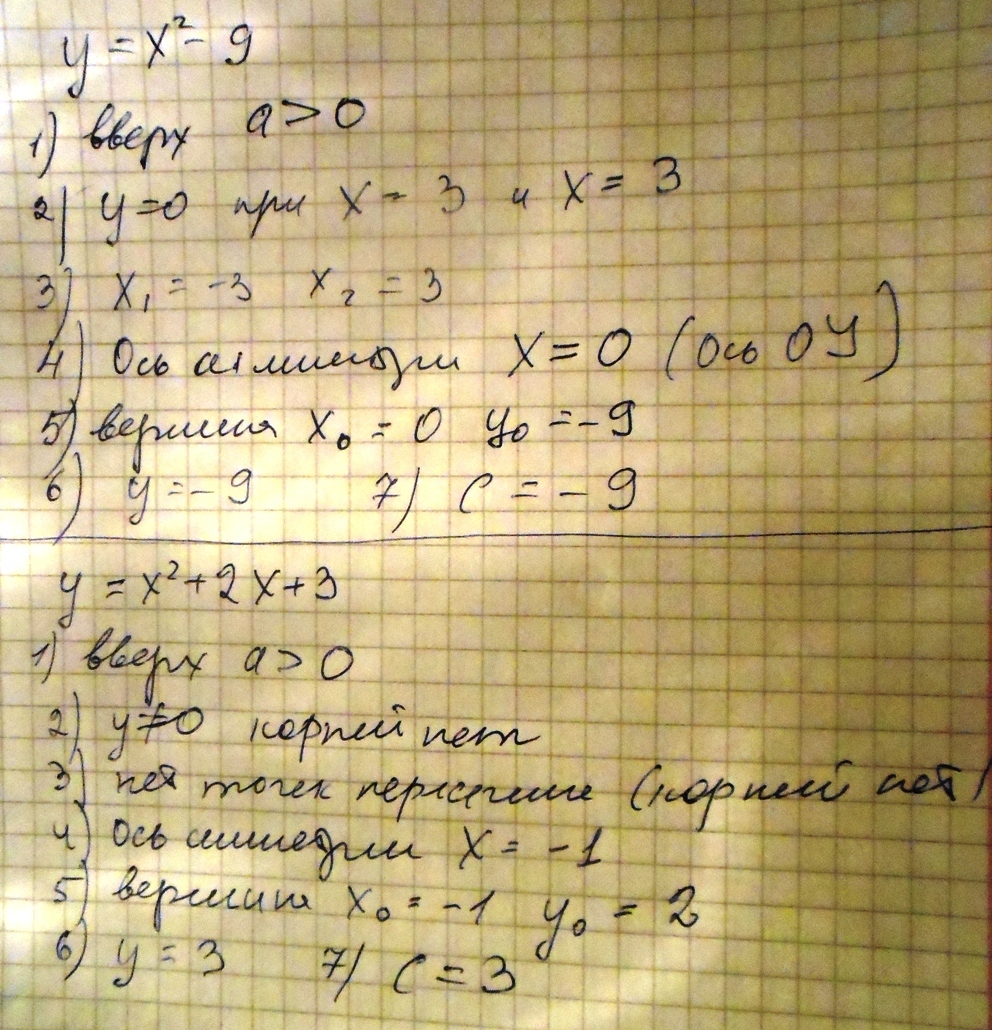 y = x² - 9
1) вверх a > 0
2) y = 0 при x = 3 и x = 3
3) x₁ = -3 x₂ = 3
4) Ось симметрии x = 0 (Ось OY)
5) вершина x₀ = 0 y₀ = -9
6) y = -9 7) c = -9
y = x² + 2x + 3
1) вверх a > 0
2) y ≠ 0 корней нет
3) нет точек пересечение (корней нет)
4) Ось симметрии x = -1
5) вершина x₀ = -1 y₀ = 2
6) y = 3 7) c = 3